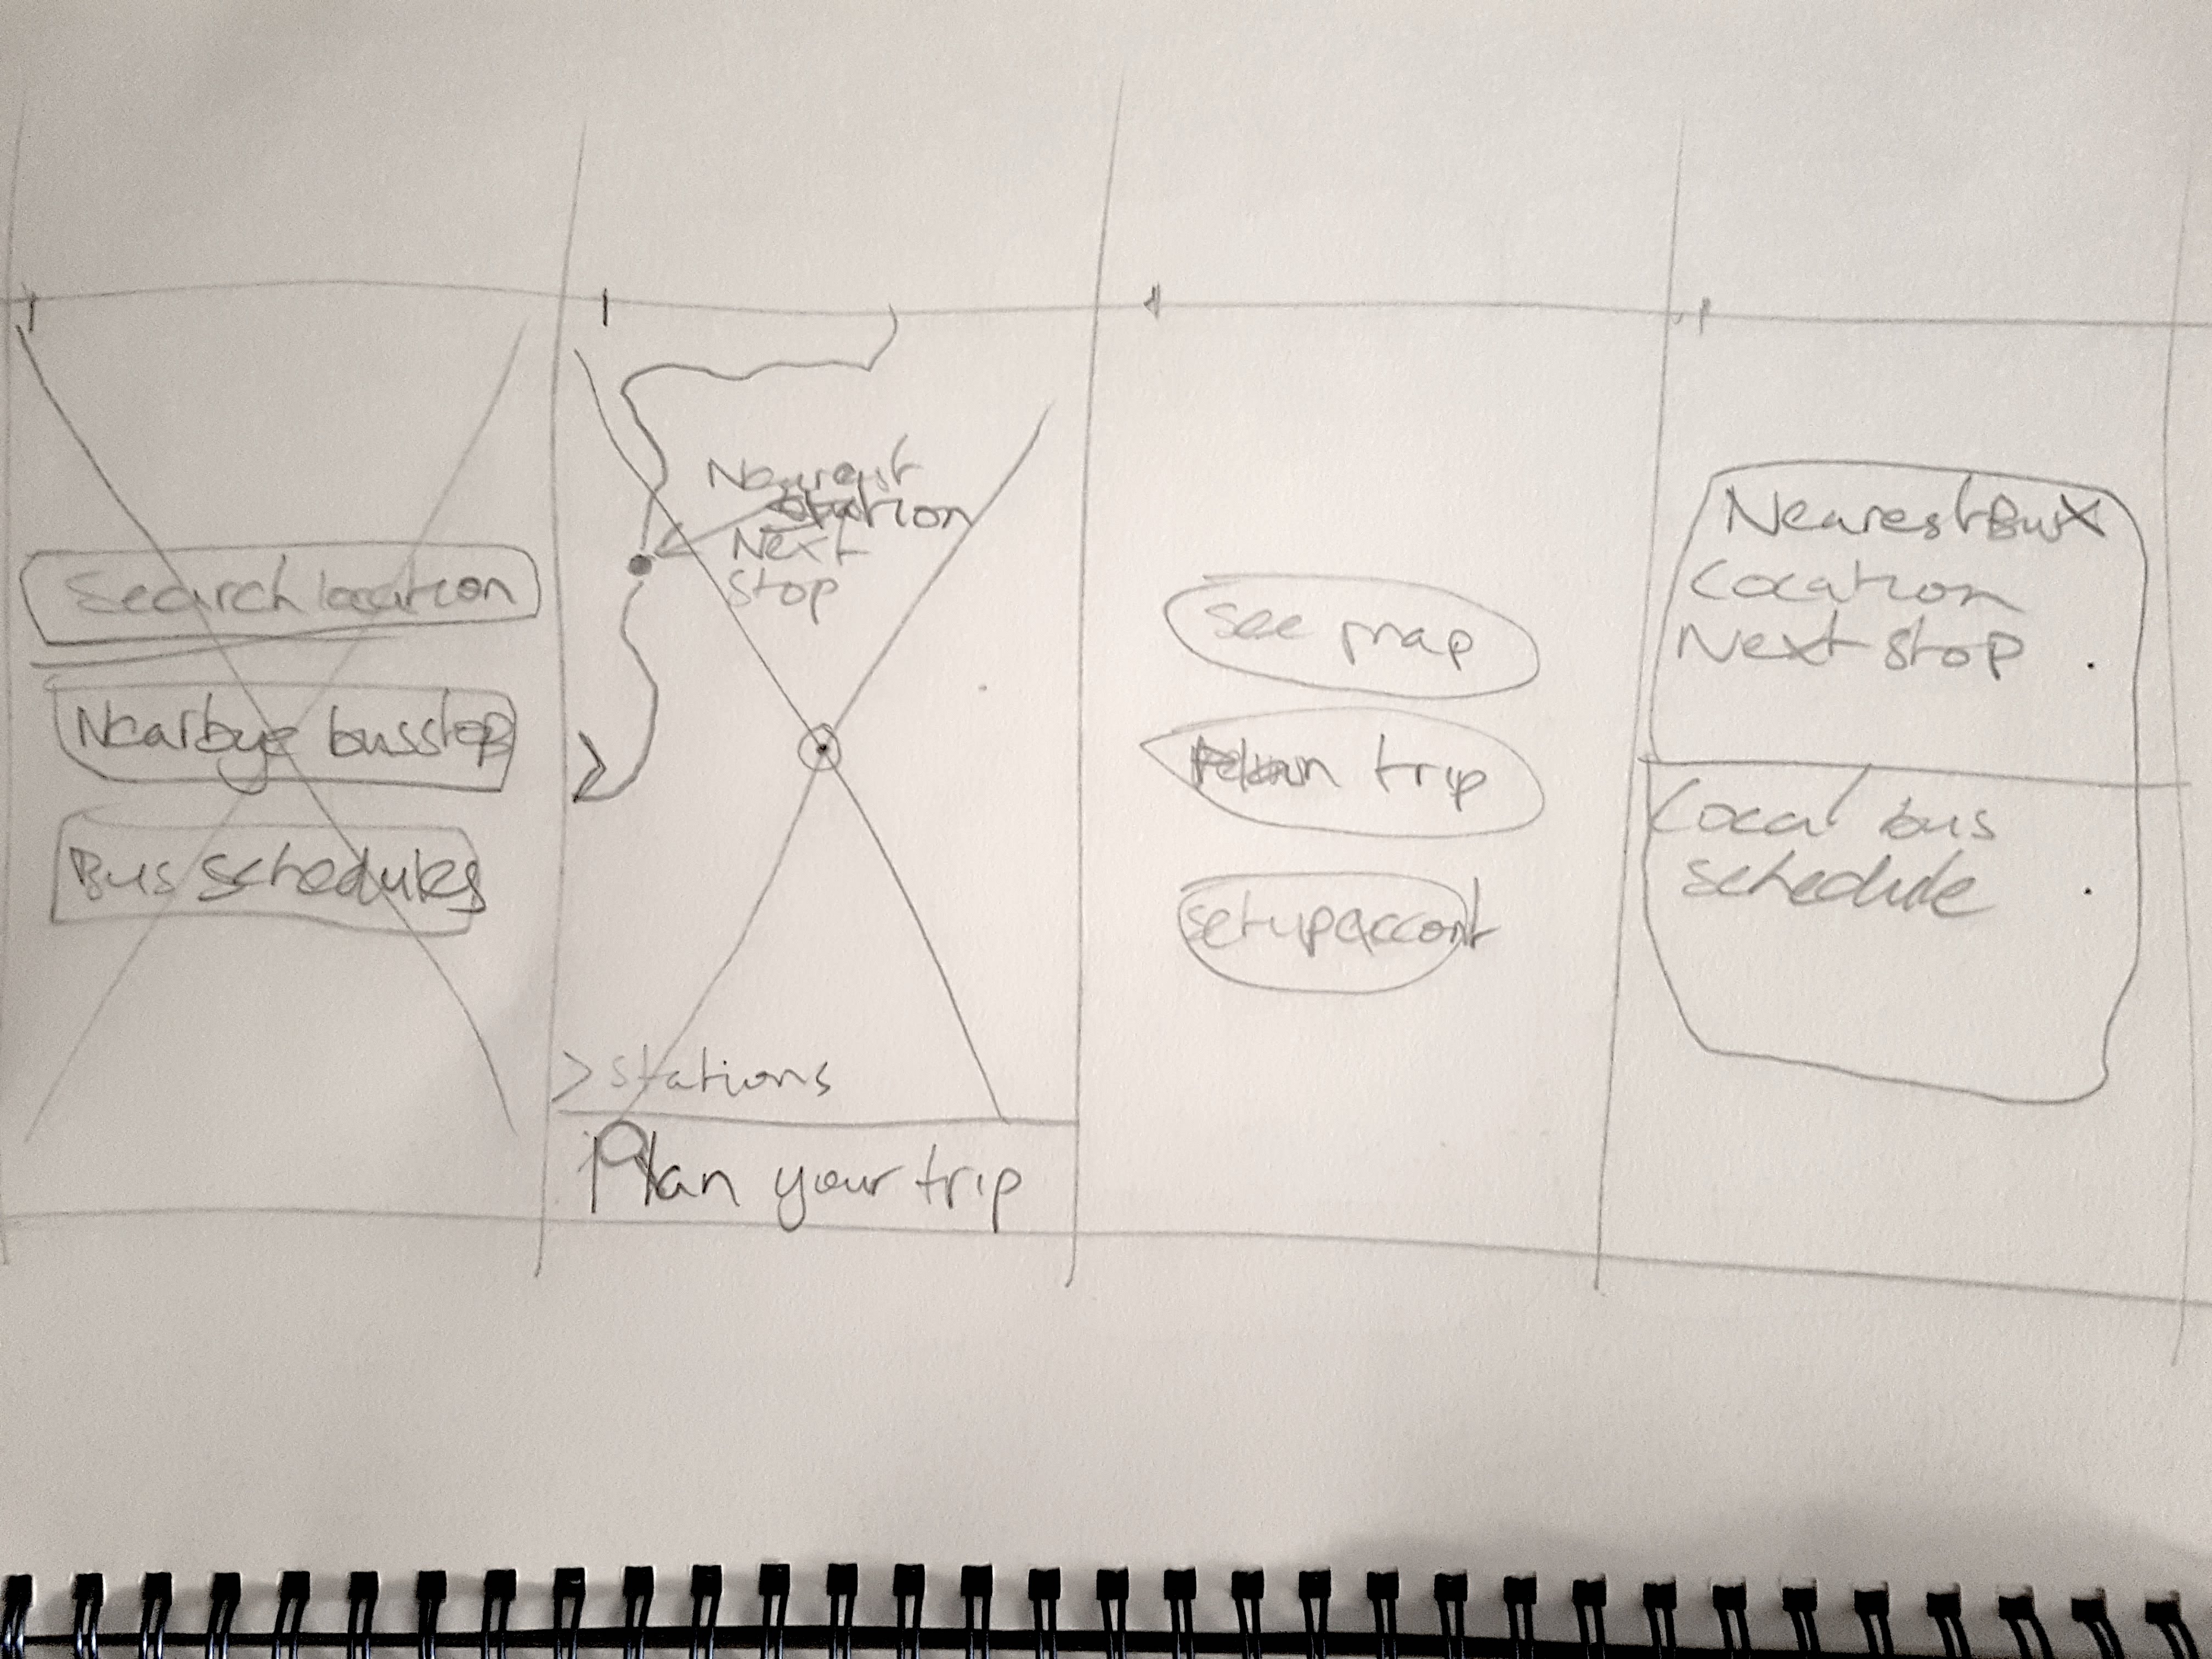 Search location
Nearbye busstop
Bus schedules
Nearest
station
Next
stop
> stations
Plan your trip
see map
trip
setup accont
Nearest Bus
Location
Next stop
Local bus
schedule